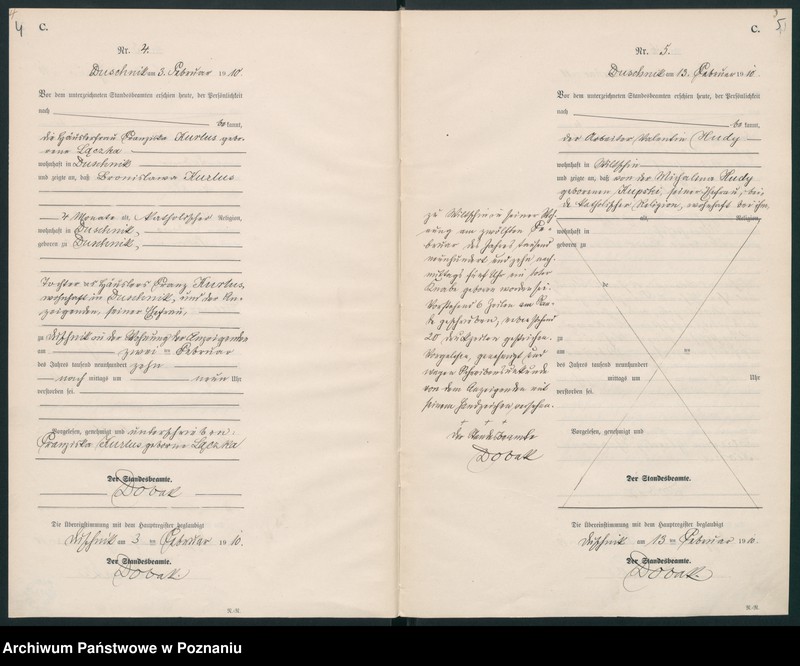 4
C.
Nr. 4.
Duschnik am 3. Februar 1910.
Vor dem unterzeichneten Standesbeamten erschien heute, der Persönlichkeit
nach
bekannt,
die Häuslerfrau Franziska Kurlus gebo-
rene Łączka
wohnhaft in Duschnik
und zeigte an, daß Bronislawa Kurlus
4 Monate alt, katholischer Religion,
wohnhaft in Duschnik,
geboren zu Duschnik,
Tochter des Häuslers Franz Kurlus,
wohnhaft in Duschnik, und der An-
zeigenden, seiner Ehefrau,
zu Duschnik in der Wohnung der Anzeigenden
am zwei ten Februar
des Jahres tausend neunhundert zehn
nach mittags um neun Uhr
verstorben sei.
Vorgelesen, genehmigt und unterschrieben:
Franziska Kurlus geborne Łączka
Der Standesbeamte.
Dobak
Die Übereinstimmung mit dem Hauptregister beglaubigt
Duschnik am 3 ten Februar 1910.
Der Standesbeamte.
Dobak.
5
C.
Nr. 5.
Duschnik am 13. Februar 1910.
Vor dem unterzeichneten Standesbeamten erschien heute, der Persönlichkeit
nach
bekannt,
der Arbeiter Valentin Hudy
wohnhaft in Wilschin
und zeigte an, daß von der Michalina Hudy
geborenen Kupski, seiner Ehefrau, bei-
de katholischer Religion, wohnhaft bei ihm
alt, Religion,
wohnhaft in
geboren zu
de
zu
am ten
des Jahres tausend neunhundert
mittags um Uhr
verstorben sei.
Vorgelesen, genehmigt und
zu Wilschin in seiner Woh-
nung am zwölften Fe-
bruar des Jahres tausend
neunhundert und zehn nach-
mittags fünf Uhr ein toter
Knabe geboren worden sei.
Vorstehend 6 Zeilen am Ran-
de geschrieben, nebenstehend
20 Druckzeilen gestrichen.
Vorgelesen, genehmigt und
wegen Schreibensunkunde
von dem Anzeigenden mit
seinem Handzeichen versehen.
+ + +
Der Standesbeamte
Dobak
Der Standesbeamte.
Die Übereinstimmung mit dem Hauptregister beglaubigt
Duschnik am 13 ten Februar 1910.
Der Standesbeamte.
Dobak.
Archiwum Państwowe w Poznaniu